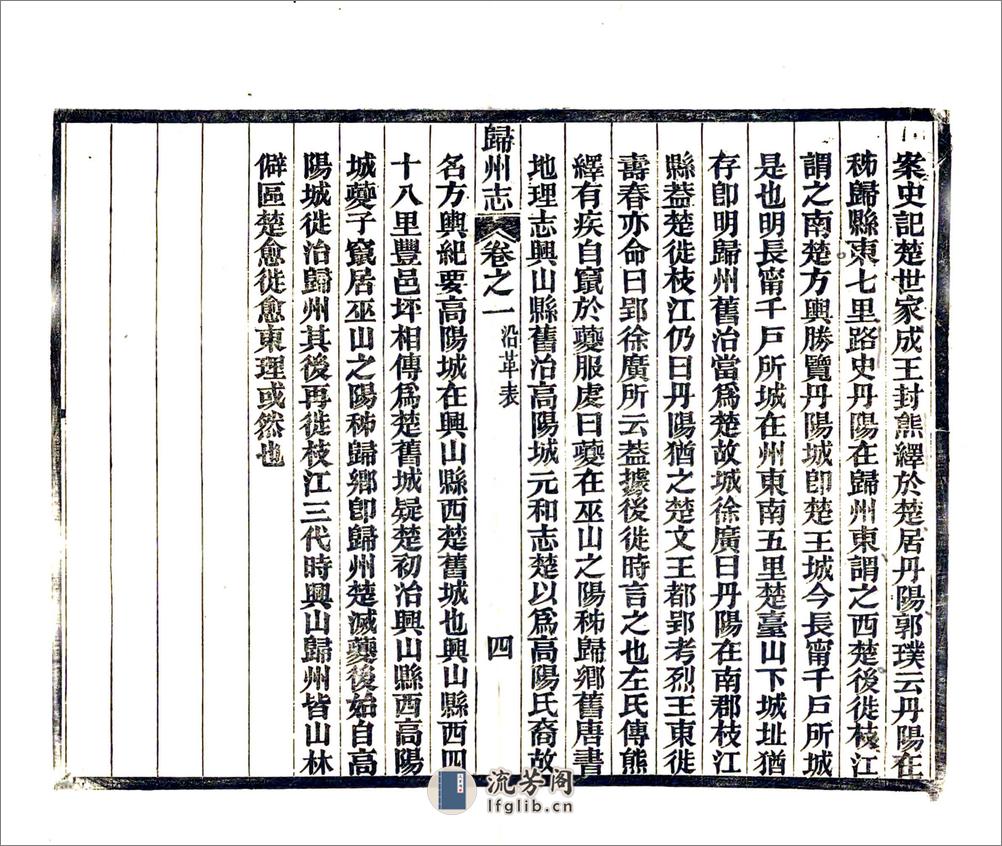 案史記楚世家成王封熊繹於楚居丹陽郭璞云丹陽在
秭歸縣東七里路史丹陽在歸州東謂之西楚後徙枝江
謂之南楚方輿勝覽丹陽城卽楚王城今長甯千戸所城
是也明長甯千戸所城在州東南五里楚臺山下城址猶
存卽明歸州舊治當爲楚故城徐廣曰丹陽在南郡枝江
縣葢楚徙枝江仍曰丹陽猶之楚文王都郢考烈王東徙
壽春亦命曰郢徐廣所云葢據後徙時言之也左氏傳熊
繹有疾自竄於夔服虔曰夔在巫山之陽秭歸鄉舊唐書
地理志興山縣舊治高陽城元和志楚以爲高陽氏裔故
歸州志 卷之一 沿革表 四
名方輿紀要高陽城在興山縣西楚舊城也興山縣西四
十八里豐邑坪相傳爲楚舊城疑楚初治興山縣西高陽
城夔子竄居巫山之陽秭歸鄉卽歸州楚滅夔後始自高
陽城徙治歸州其後再徙枝江三代時興山歸州皆山林
僻區楚愈徙愈東理或然也
流芳阁
lfglib.cn